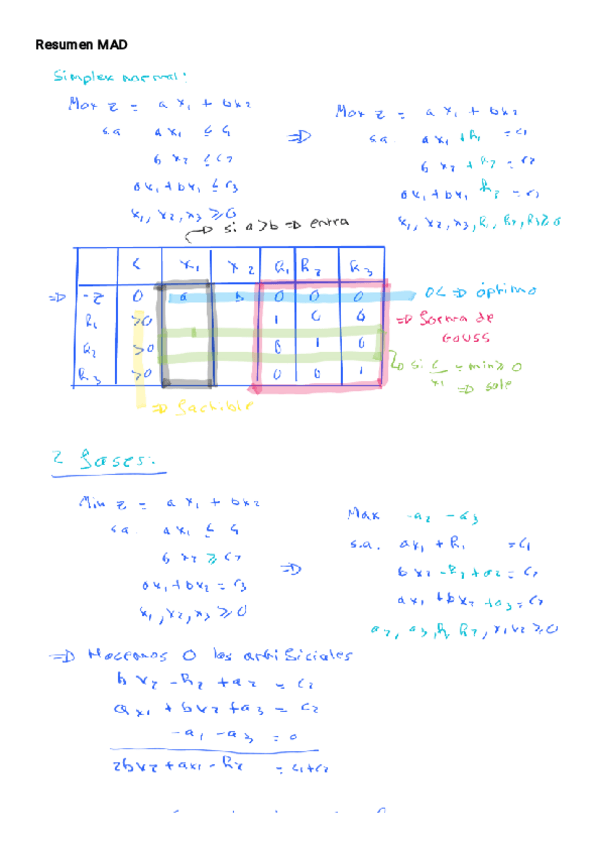 Resumen MAD
Simplex normal:
Max z = a x₁ + bx₂
s.a. a x₁ ≤ c₁
b x₂ ≤ c₂
ax₁ + bx₁ ≤ c₃
x₁, x₂, x₃ ≥ 0
⇒
Max z = a x₁ + bx₂
s.a. a x₁ + h₁ = c₁
b x₂ + h₂ = c₂
ax₁ + bx₁ h₃ = c₃
x₁, x₂, x₃, h₁, h₂, h₃ ≥ 0
⇒ si a > b ⇒ entra
c x₁ x₂ h₁ h₂ h₃
⇒ -z 0 a b 0 0 0 0< ⇒ óptimo
h₁ >0 1 0 0 ⇒ forma de Gauss
h₂ >0 0 1 0 ⇒ si c/x₁ = min ≥ 0 ⇒ sale
h₃ >0 0 0 1
⇒ factible
2 fases:
Min z = a x₁ + bx₂
s.a. a x₁ ≤ c₁
b x₂ ≥ c₂
ax₁ + bx₂ = c₃
x₁, x₂, x₃ ≥ 0
⇒
Max -a₂ - a₃
s.a. ax₁ + h₁ = c₁
b x₂ - h₂ + a₂ = c₂
ax₁ + bx₂ + a₃ = c₂
a₂, a₃, h₁, h₂, x₁, x₂ ≥ 0
⇒ Hacemos 0 las artificiales
b x₂ - h₂ + a₂ = c₂
ax₁ + bx₂ + a₃ = c₂
-a₁ - a₃ = 0
2bx₂ + ax₁ - h₂ = c₁+c₂